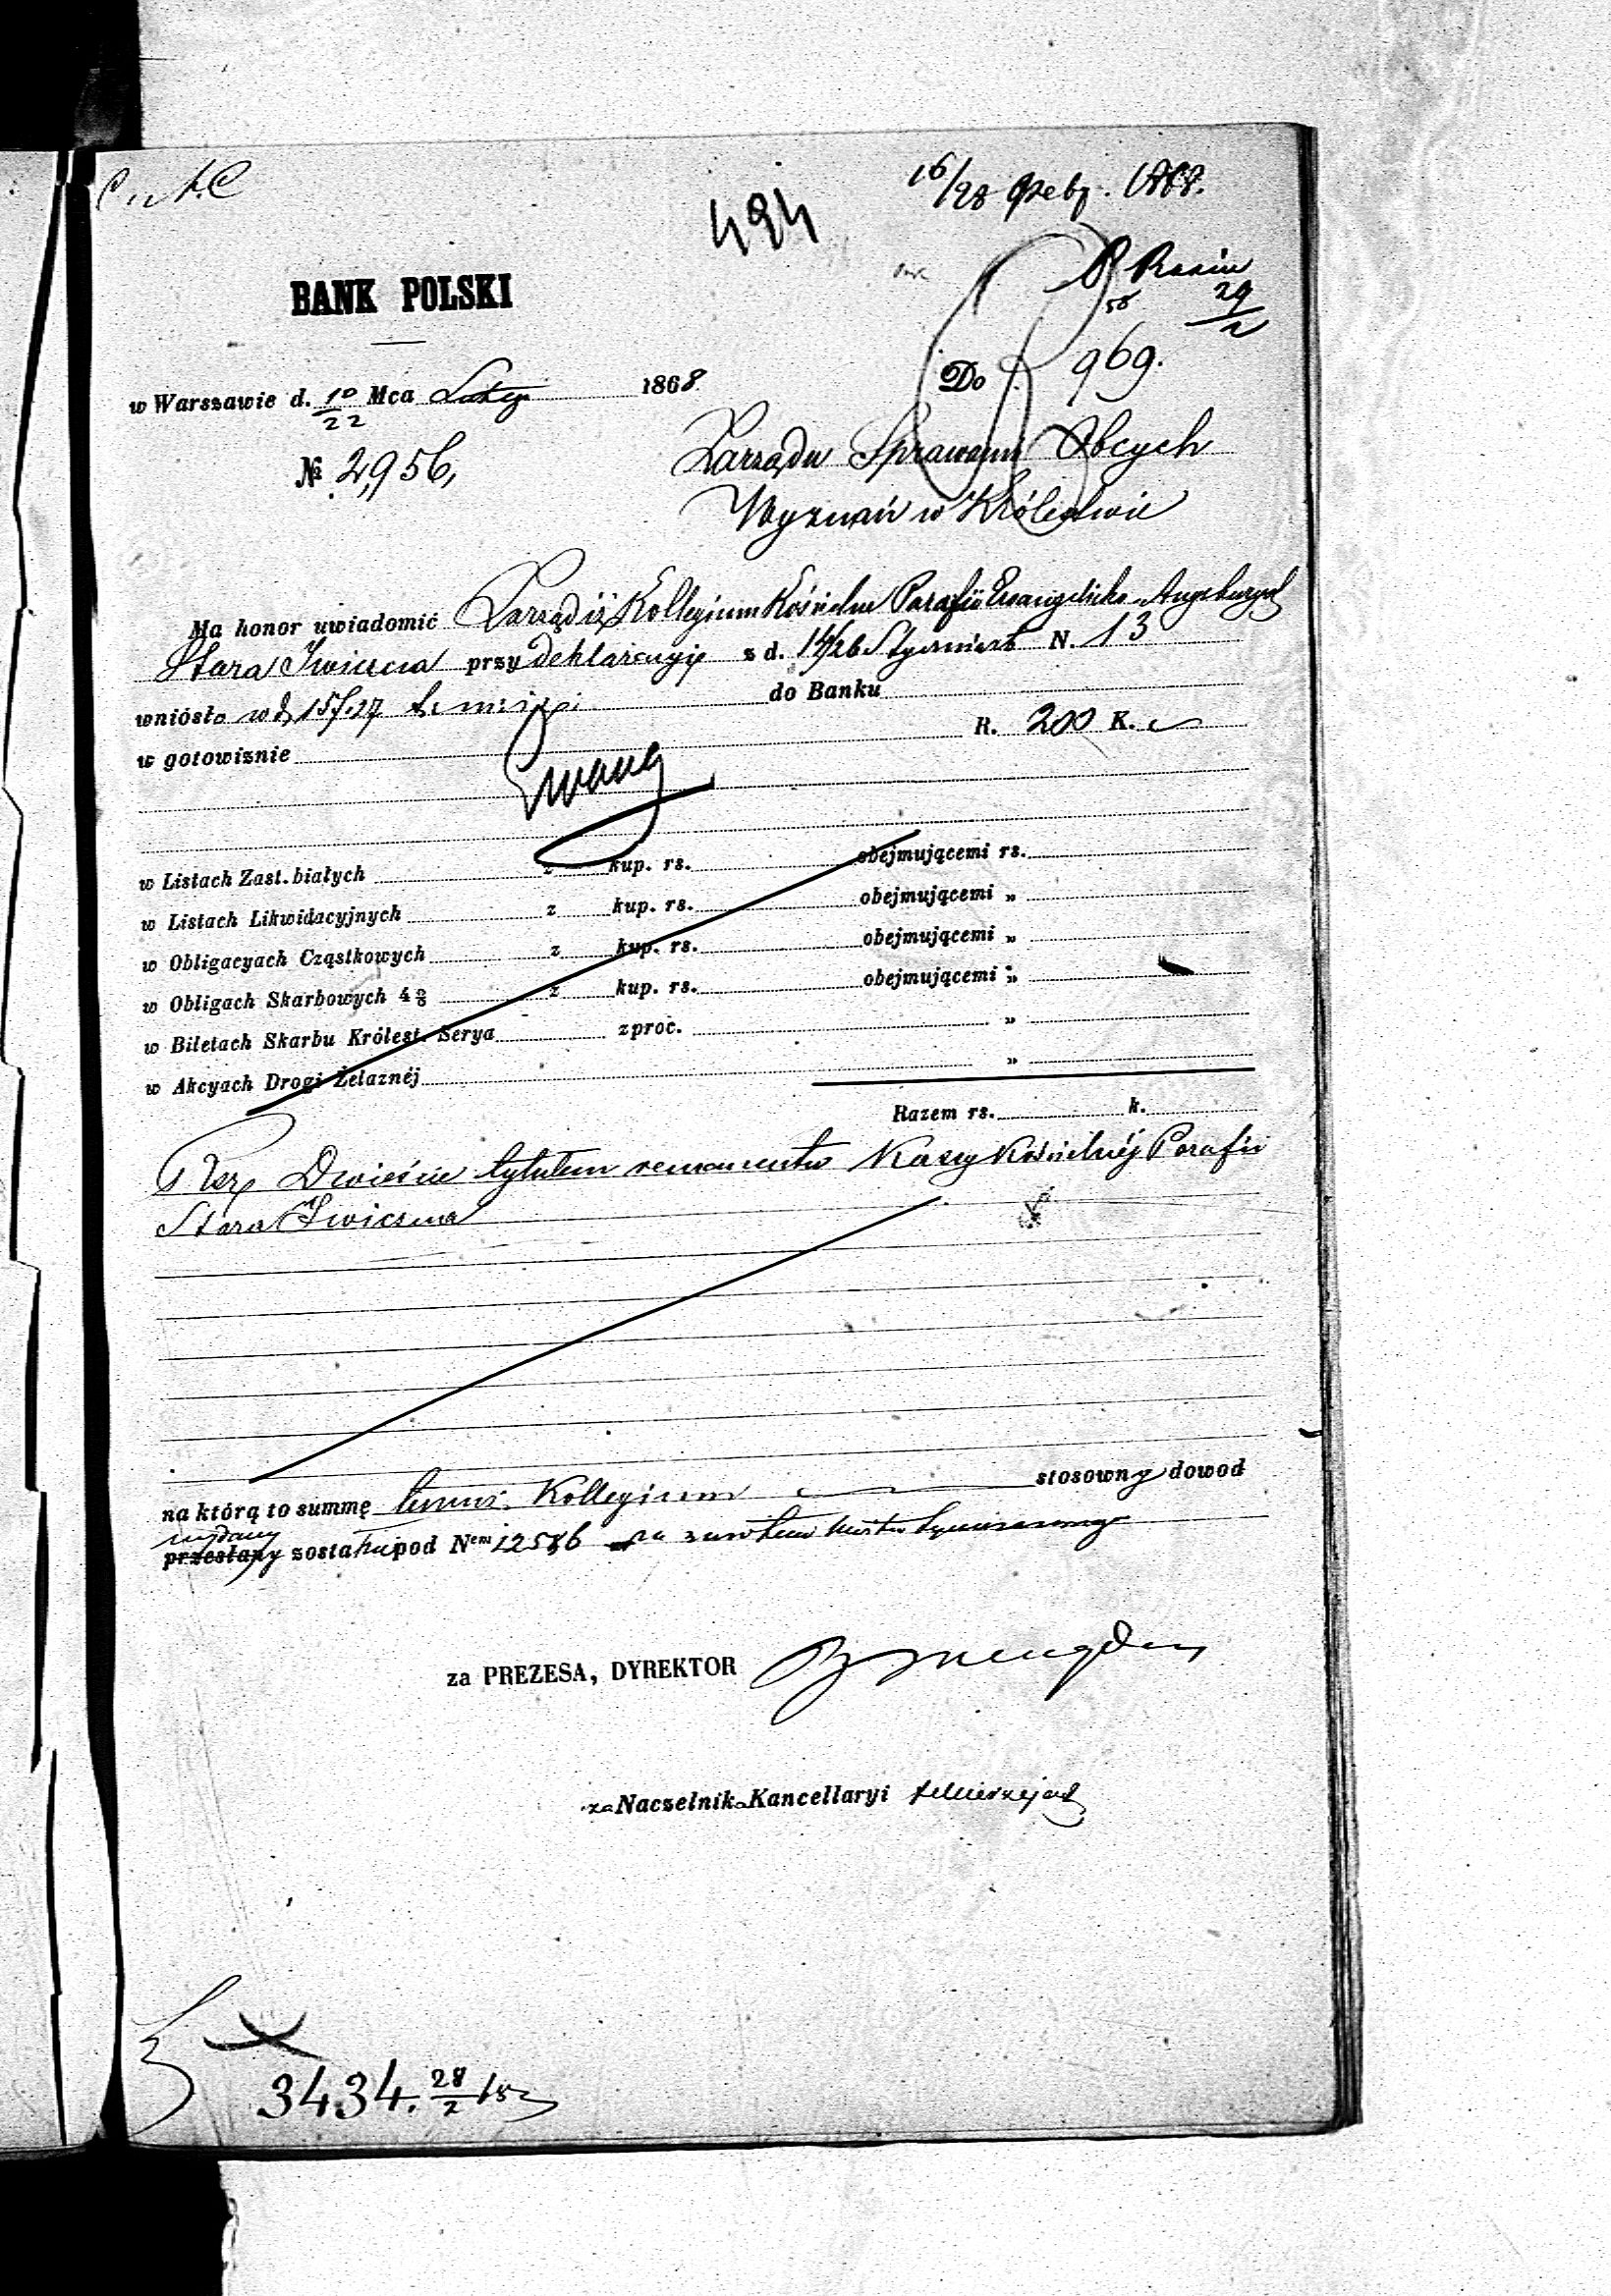 494
16/28 Февр. 1868.
29/2
BANK POLSKI
w Warszawie d. 10/22 Mca Lutego 1868
Do 969.
№ 2,956,
Zarządu Sprawami Obcych
Wyznań w Królestwie
Ma honor uwiadomić Zarząd iż Kollegium Kościelne Parafii Ewangelicko-Augsburgs
Stara Iwiczna przy deklaracyi z d. 14/26 Stycznia N. 13
wniosło w d. 15/27 t. m. i r. do Banku
w gotowiznie R. 200 K.
w Listach Zast. białych z kup. rs. obejmującemi rs.
w Listach Likwidacyjnych z kup. rs. obejmującemi "
w Obligacyach Cząstkowych z kup. rs. obejmującemi "
w Obligach Skarbowych 4% z kup. rs. obejmującemi "
w Biletach Skarbu Królest. Serya z proc. "
w Akcyach Drogi Żelaznéj "
Razem rs. k.
Rsr. Dwieście tytułem remanentu Kassy Kościelnéj Parafii
Stara Iwiczna
na którą to summę temuż Kollegium stosowny dowod
wydany
przesłany został pod Nem 12586
za PREZESA, DYREKTOR
za Naczelnik Kancellaryi
3434. 28/2